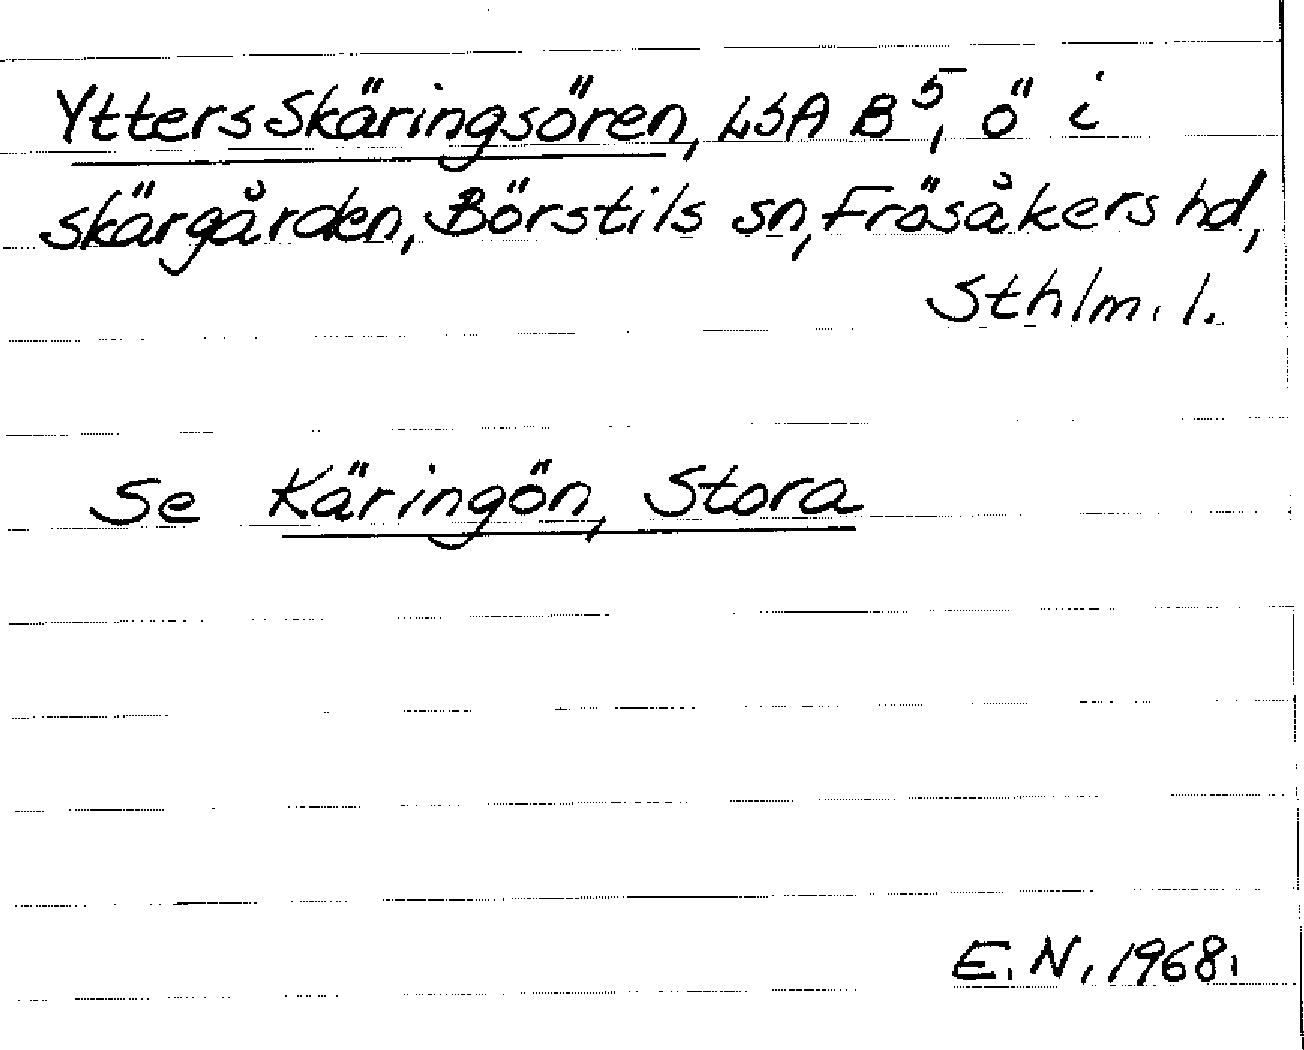 Ytters Skäringsören, LSA B 5, ö i
skärgården, Börstils sn, Frösåkers hd,
Sthlm. l.
Se Käringön, Stora
E. N. 1968.